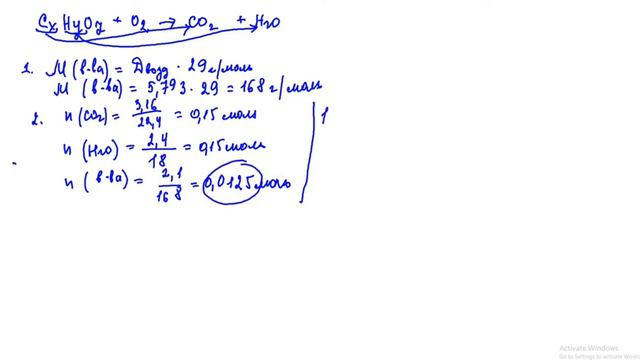 CxHyOz + O2 → CO2 + H2O
1. M (в-ва) = Двозд · 29 г/моль
M (в-ва) = 5,793 · 29 = 168 г/моль
2. n (CO2) = 3,16 / 22,4 = 0,15 моль
n (H2O) = 2,4 / 18 = 0,15 моль
n (в-ва) = 2,1 / 168 = 0,0125 моль
1
Activate Windows
Go to Settings to activate Windows